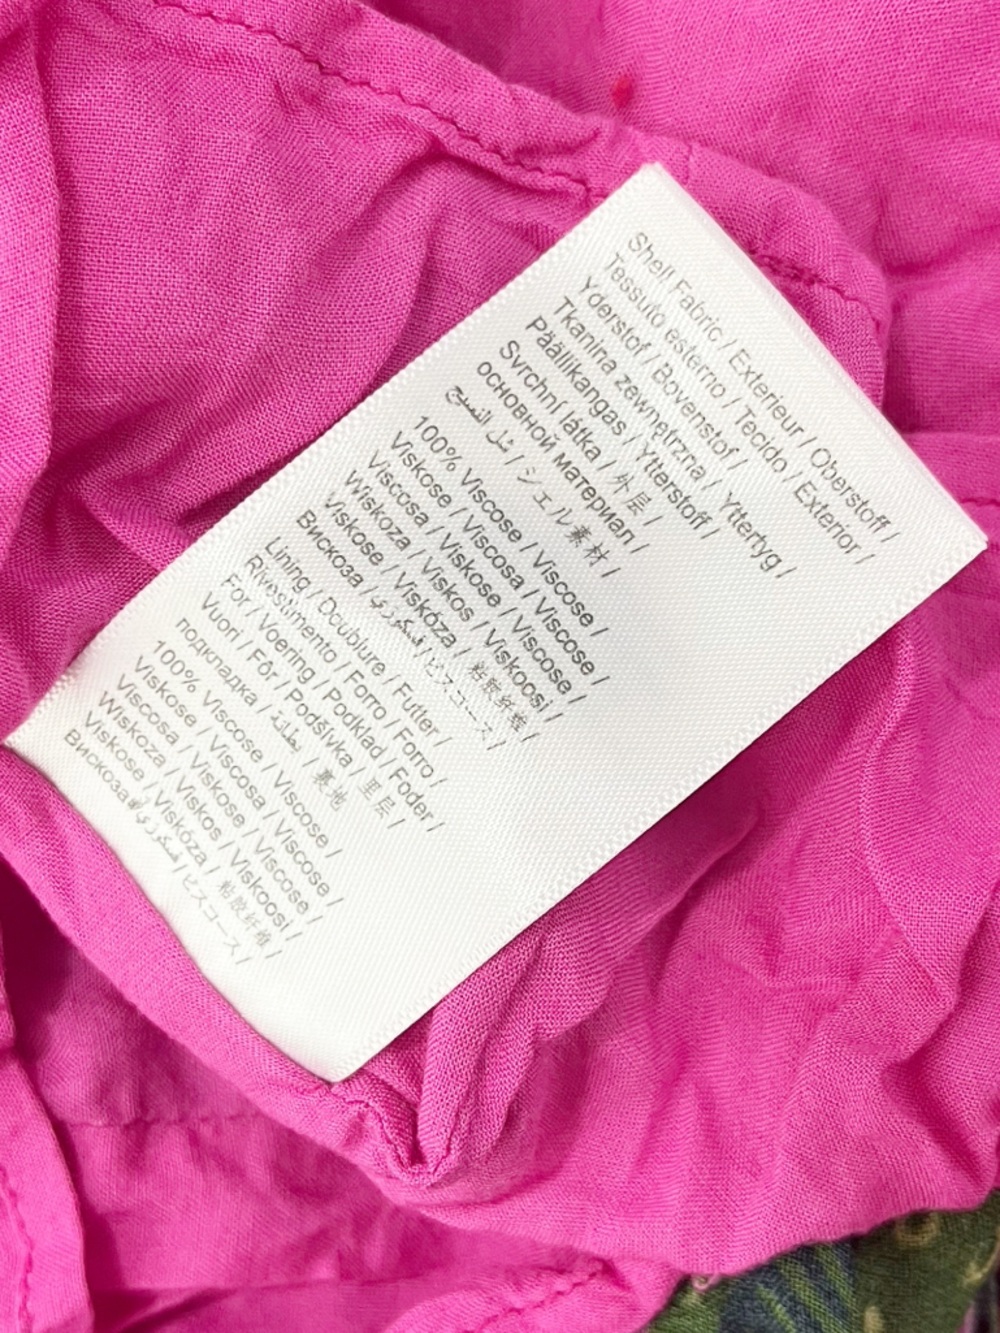 Shell Fabric / Exterieur / Oberstoff /
Tessuto esterno / Tecido / Exterior /
Yderstof / Bovenstof /
Tkanina zewnętrzna / Yttertyg /
Päällikangas / Ytterstoff /
Svrchní látka / 外层 /
основной материал /
شل النسيج / シェル素材 /
100% Viscose / Viscose /
Viskose / Viscosa / Viscose /
Viscosa / Viskose / Viscose /
Wiskoza / Viskos / Viskoosi /
Viskose / Viskóza / 粘胶纤维 /
Вискоза / فيسكوزي / ビスコース /
Lining / Doublure / Futter /
Rivestimento / Forro / Forro /
För / Voering / Podkład / Foder /
Vuori / Fôr / Podšívka / 里层 /
подкладка / بطانة / 裏地
100% Viscose / Viscose /
Viskose / Viscosa / Viscose /
Viscosa / Viskose / Viscose /
Wiskoza / Viskos / Viskoosi /
Viskose / Viskóza / 粘胶纤维 /
Вискоза / فيسكوزي / ビスコース /